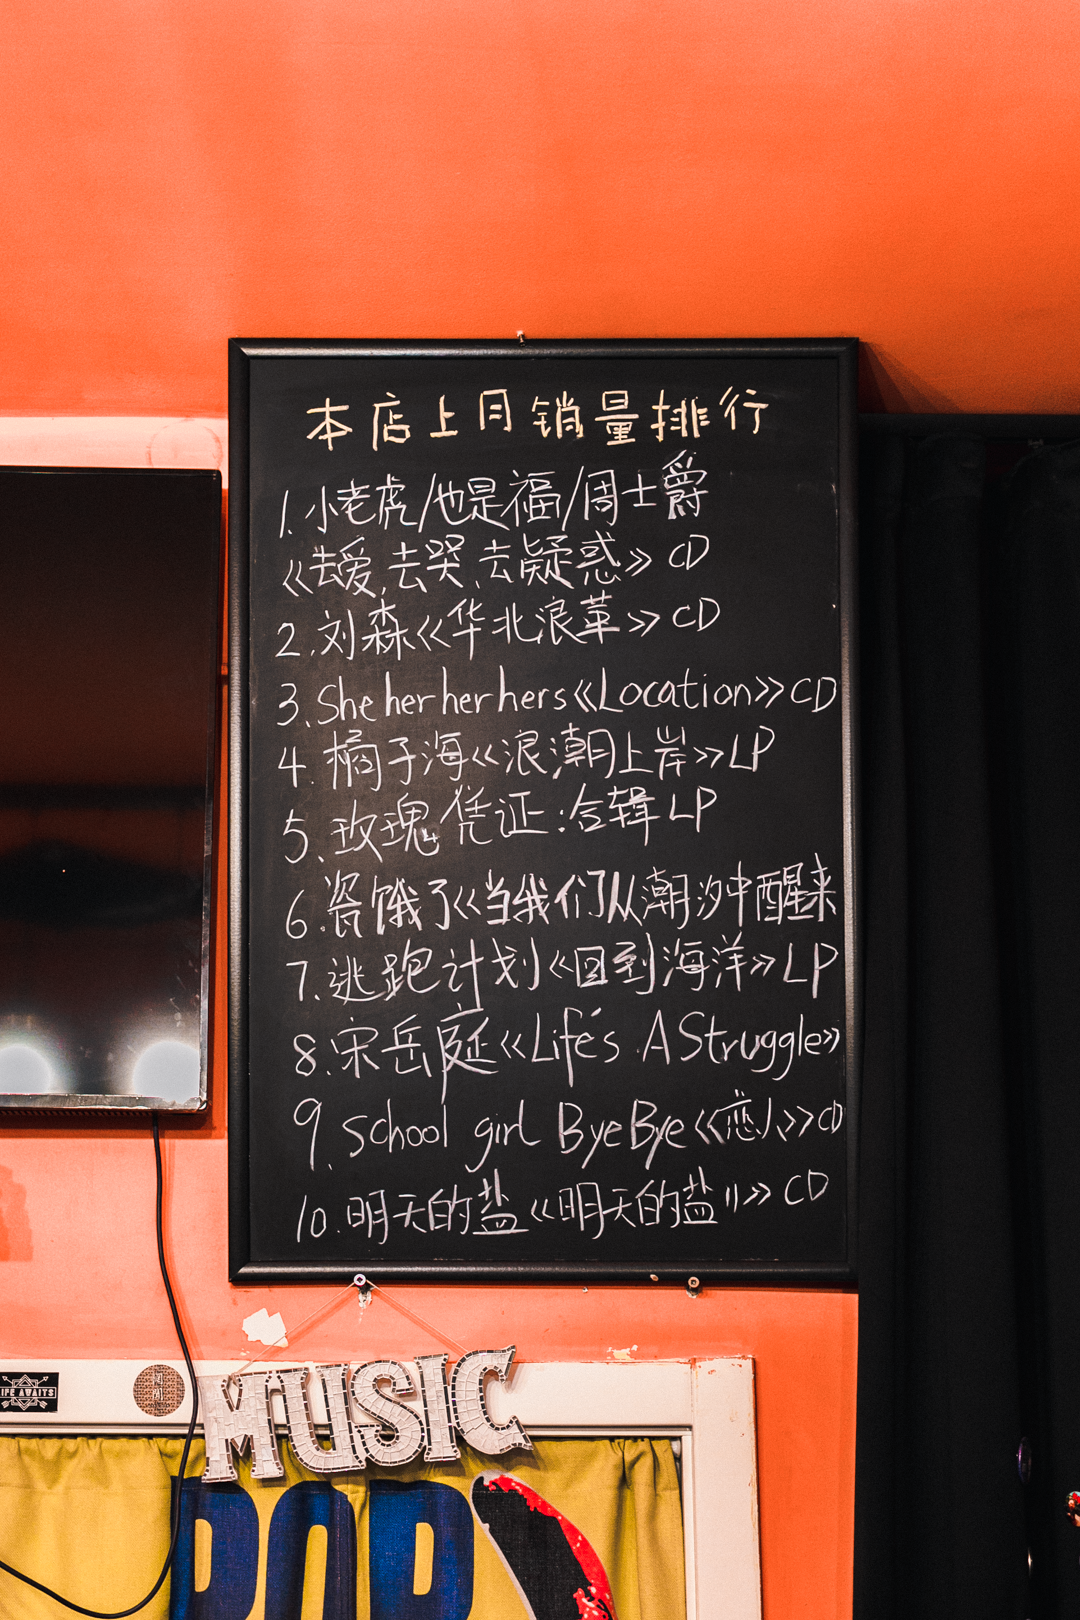 本店上月销量排行
1.小老虎/也是福/周士爵
《去爱,去哭,去疑惑》CD
2.刘森《华北浪革》CD
3.She her her hers《Location》CD
4.橘子海《浪潮上岸》LP
5.玫瑰凭证:合辑LP
6.瓷饿了《当我们从潮汐中醒来
7.逃跑计划《回到海洋》LP
8.宋岳庭《Life's A Struggle》
9.School girl ByeBye《恋人》CD
10.明天的盐《明天的盐II》CD
MUSIC
LIFE AWAITS
POP